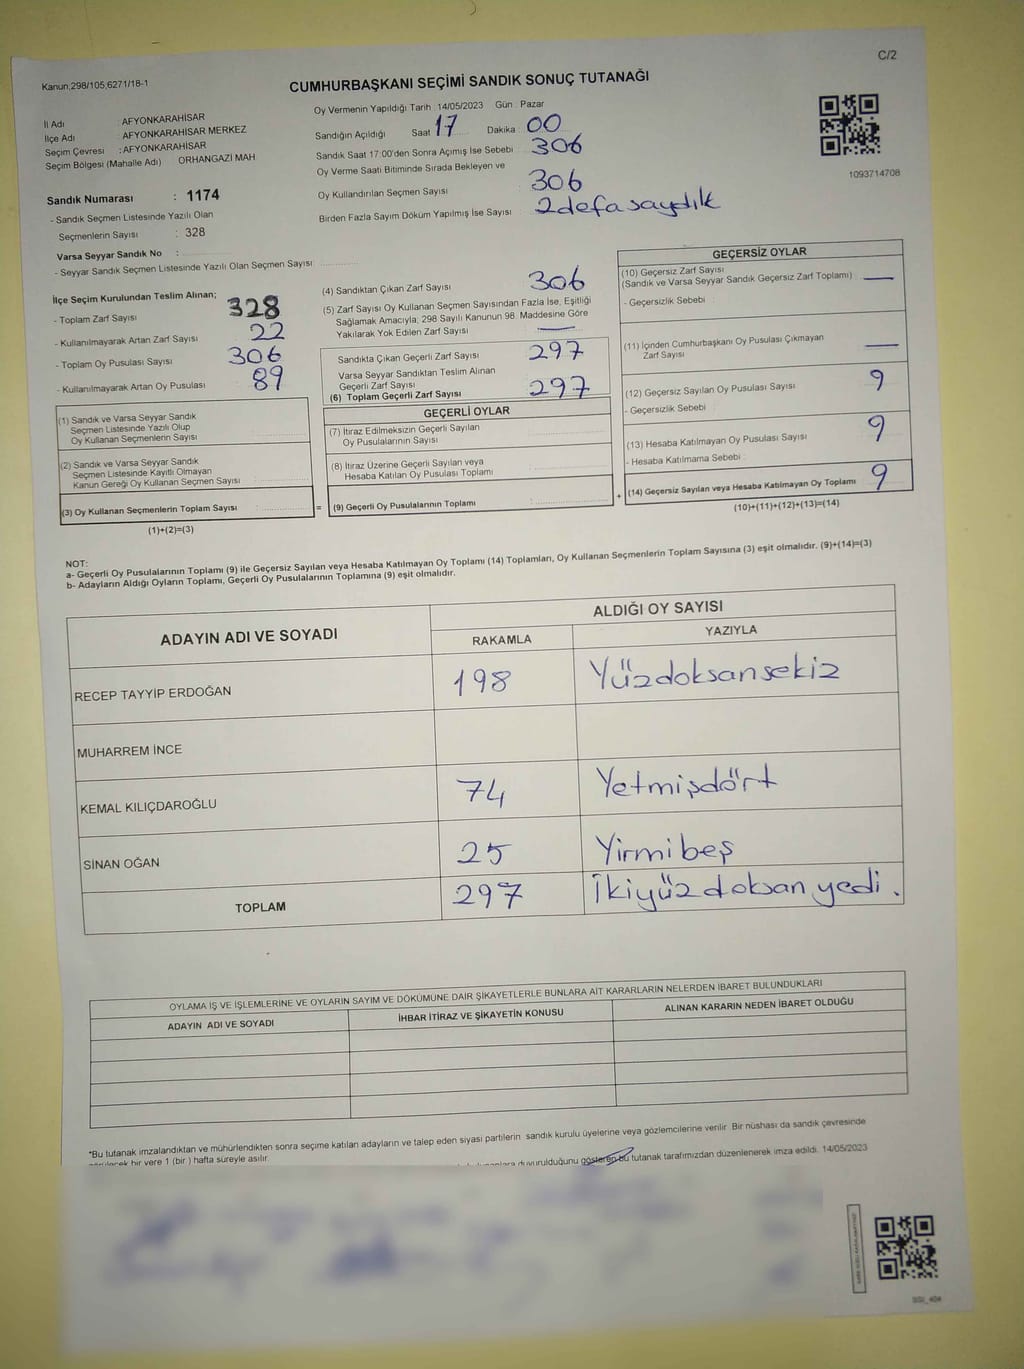 C/2
Kanun;298/105,6271/18-1
CUMHURBAŞKANI SEÇİMİ SANDIK SONUÇ TUTANAĞI
İl Adı : AFYONKARAHİSAR
İlçe Adı : AFYONKARAHİSAR MERKEZ
Seçim Çevresi : AFYONKARAHİSAR
Seçim Bölgesi (Mahalle Adı) ORHANGAZİ MAH
Sandık Numarası : 1174
- Sandık Seçmen Listesinde Yazılı Olan
Seçmenlerin Sayısı : 328
Varsa Seyyar Sandık No :
- Seyyar Sandık Seçmen Listesinde Yazılı Olan Seçmen Sayısı
Oy Vermenin Yapıldığı Tarih : 14/05/2023 Gün : Pazar
Sandığın Açıldığı Saat 17 Dakika 00
Sandık Saat 17:00'den Sonra Açımış İse Sebebi : 306
Oy Verme Saati Bitiminde Sırada Bekleyen ve
Oy Kullandırılan Seçmen Sayısı : 306
Birden Fazla Sayım Döküm Yapılmış İse Sayısı : 2 defa saydık
1093714708
İlçe Seçim Kurulundan Teslim Alınan;
- Toplam Zarf Sayısı : 328
- Kullanılmayarak Artan Zarf Sayısı : 22
- Toplam Oy Pusulası Sayısı : 306
- Kullanılmayarak Artan Oy Pusulası : 89
(1) Sandık ve Varsa Seyyar Sandık
Seçmen Listesinde Yazılı Olup
Oy Kullanan Seçmenlerin Sayısı :
(2) Sandık ve Varsa Seyyar Sandık
Seçmen Listesinde Kayıtlı Olmayan
Kanun Gereği Oy Kullanan Seçmen Sayısı :
(3) Oy Kullanan Seçmenlerin Toplam Sayısı :
(1)+(2)=(3)
(4) Sandıktan Çıkan Zarf Sayısı : 306
(5) Zarf Sayısı Oy Kullanan Seçmen Sayısından Fazla İse, Eşitliği
Sağlamak Amacıyla; 298 Sayılı Kanunun 98. Maddesine Göre
Yakılarak Yok Edilen Zarf Sayısı : —
Sandıkta Çıkan Geçerli Zarf Sayısı : 297
Varsa Seyyar Sandıktan Teslim Alınan
Geçerli Zarf Sayısı
(6) Toplam Geçerli Zarf Sayısı : 297
GEÇERLİ OYLAR
(7) İtiraz Edilmeksizin Geçerli Sayılan
Oy Pusulalarının Sayısı :
(8) İtiraz Üzerine Geçerli Sayılan veya
Hesaba Katılan Oy Pusulası Toplamı :
= (9) Geçerli Oy Pusulalarının Toplamı : +
GEÇERSİZ OYLAR
(10) Geçersiz Zarf Sayısı
(Sandık ve Varsa Seyyar Sandık Geçersiz Zarf Toplamı) : —
- Geçersizlik Sebebi :
(11) İçinden Cumhurbaşkanı Oy Pusulası Çıkmayan
Zarf Sayısı : —
(12) Geçersiz Sayılan Oy Pusulası Sayısı : 9
- Geçersizlik Sebebi :
(13) Hesaba Katılmayan Oy Pusulası Sayısı : 9
- Hesaba Katılmama Sebebi :
(14) Geçersiz Sayılan veya Hesaba Katılmayan Oy Toplamı : 9
(10)+(11)+(12)+(13)=(14)
NOT:
a- Geçerli Oy Pusulalarının Toplamı (9) ile Geçersiz Sayılan veya Hesaba Katılmayan Oy Toplamı (14) Toplamları, Oy Kullanan Seçmenlerin Toplam Sayısına (3) eşit olmalıdır. (9)+(14)=(3)
b- Adayların Aldığı Oyların Toplamı, Geçerli Oy Pusulalarının Toplamına (9) eşit olmalıdır.
ADAYIN ADI VE SOYADI
ALDIĞI OY SAYISI
RAKAMLA YAZIYLA
RECEP TAYYİP ERDOĞAN 198 Yüzdoksansekiz
MUHARREM İNCE
KEMAL KILIÇDAROĞLU 74 Yetmişdört
SİNAN OĞAN 25 Yirmibeş
TOPLAM 297 İkiyüzdoksanyedi.
OYLAMA İŞ VE İŞLEMLERİNE VE OYLARIN SAYIM VE DÖKÜMÜNE DAİR ŞİKAYETLERLE BUNLARA AİT KARARLARIN NELERDEN İBARET BULUNDUKLARI
ADAYIN ADI VE SOYADI İHBAR İTİRAZ VE ŞİKAYETİN KONUSU ALINAN KARARIN NEDEN İBARET OLDUĞU
*Bu tutanak imzalandıktan ve mühürlendikten sonra seçime katılan adayların ve talep eden siyasi partilerin sandık kurulu üyelerine veya gözlemcilerine verilir. Bir nüshası da sandık çevresinde
bir yere 1 (bir ) hafta süreyle asılır.
duyurulduğunu gösteren bu tutanak tarafımızdan düzenlenerek imza edildi. 14/05/2023